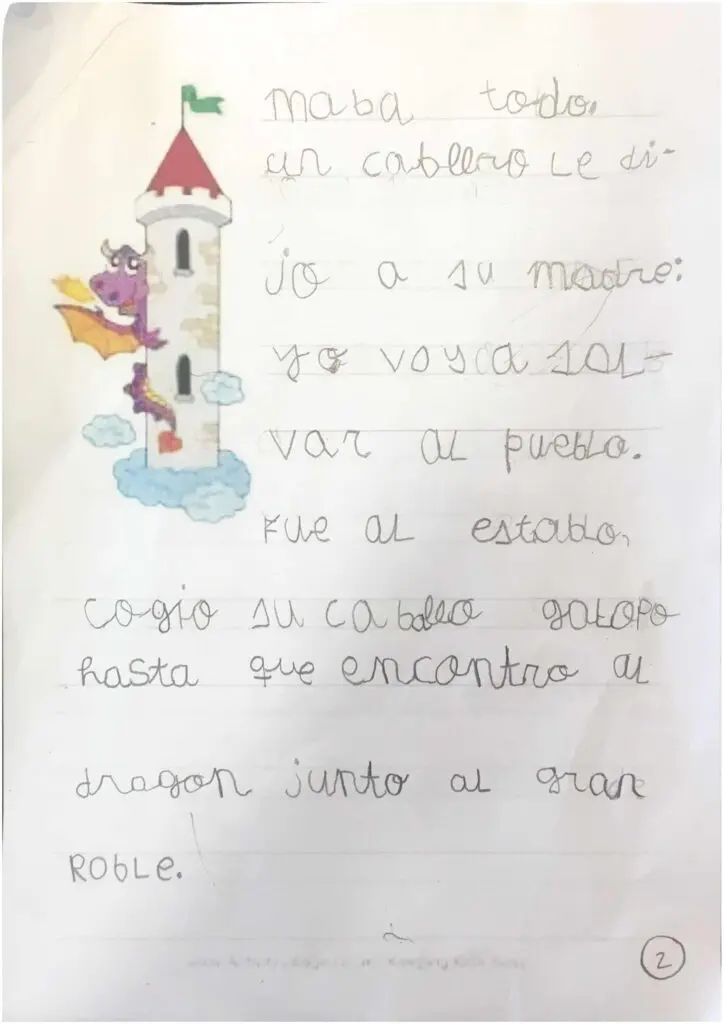 maba todo.
un cabllero le di-
jo a su madre:
yo voy a sal-
var al pueblo.
Fue al establo,
cogio su caballo galopo
hasta que encontro al
dragon junto al gran
Roble.
2